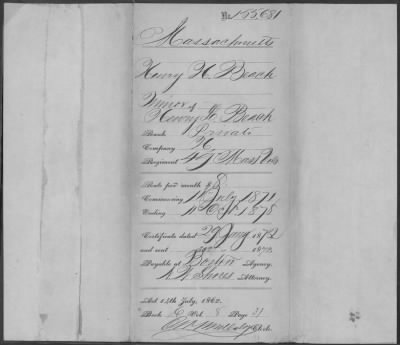 No. 155,681
Massachusetts
Henry H. Beach
Minor of
Henry H. Beach
Rank Private
Company H
Regiment 47 Mass Vols
Rate per month $8
Commencing 11 July 1871
Ending 11 Oct 1878
Certificate dated 29 Jany 1872
and sent 1872
Payable at Boston Agency.
Attorney.
Act 14th July, 1862.
Book C Vol. 8 Page 21
Clerk.